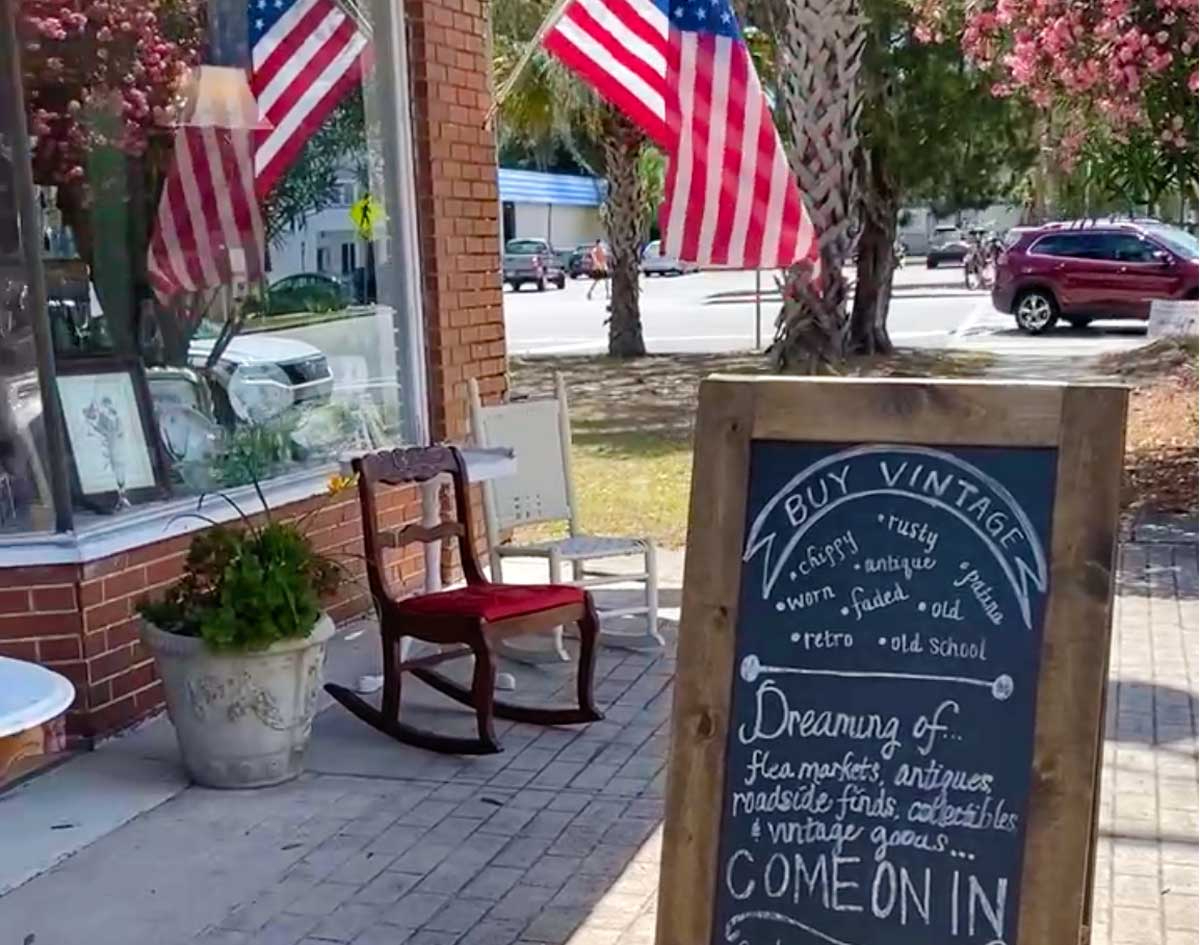 BUY VINTAGE
• rusty
• chippy • antique • patina
• worn • faded • old
• retro • old school
Dreaming of...
flea markets, antiques,
roadside finds, collectibles,
& vintage goods...
COME ON IN